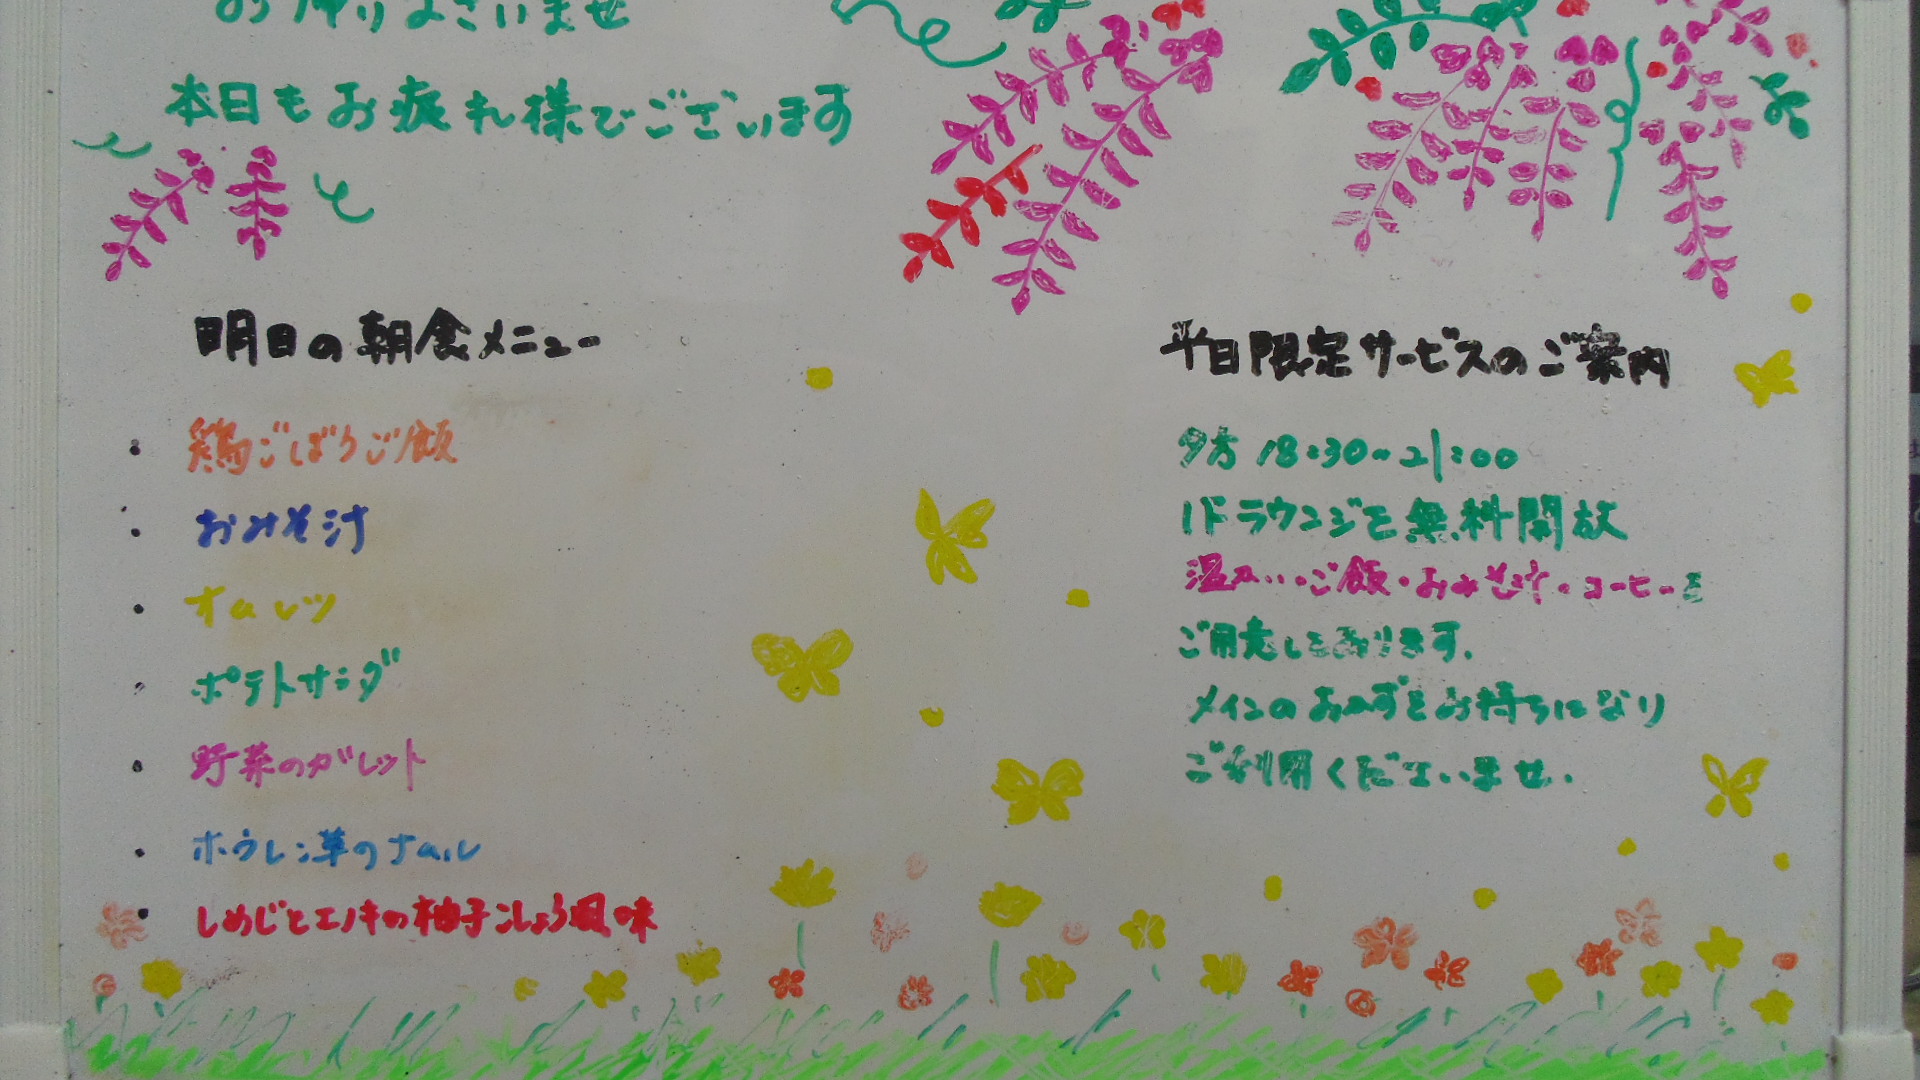 お帰りなさいませ
本日もお疲れ様でございます
明日の朝食メニュー
・鶏ごぼうご飯
・おみそ汁
・オムレツ
・ポテトサラダ
・野菜のガレット
・ホウレン草のナムル
・しめじとエノキの柚子こしょう風味
平日限定サービスのご案内
夕方 18:30~21:00
1Fラウンジを無料開放
温かいご飯・おみそ汁・コーヒーを
ご用意しております。
メインのおかずをお持ちになり
ご利用くださいませ。